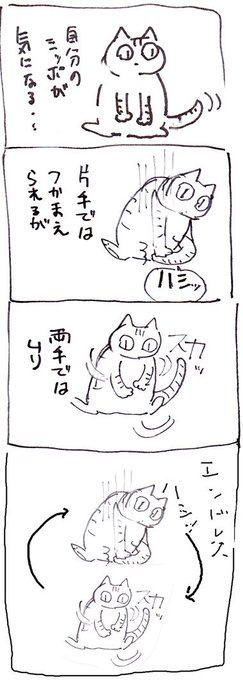 自分の
シッポが
気になる・・
片手では
つかまえ
られるが
パシッ
スカッ
両手では
ムリ
エンドレス
パシッ
スカッ